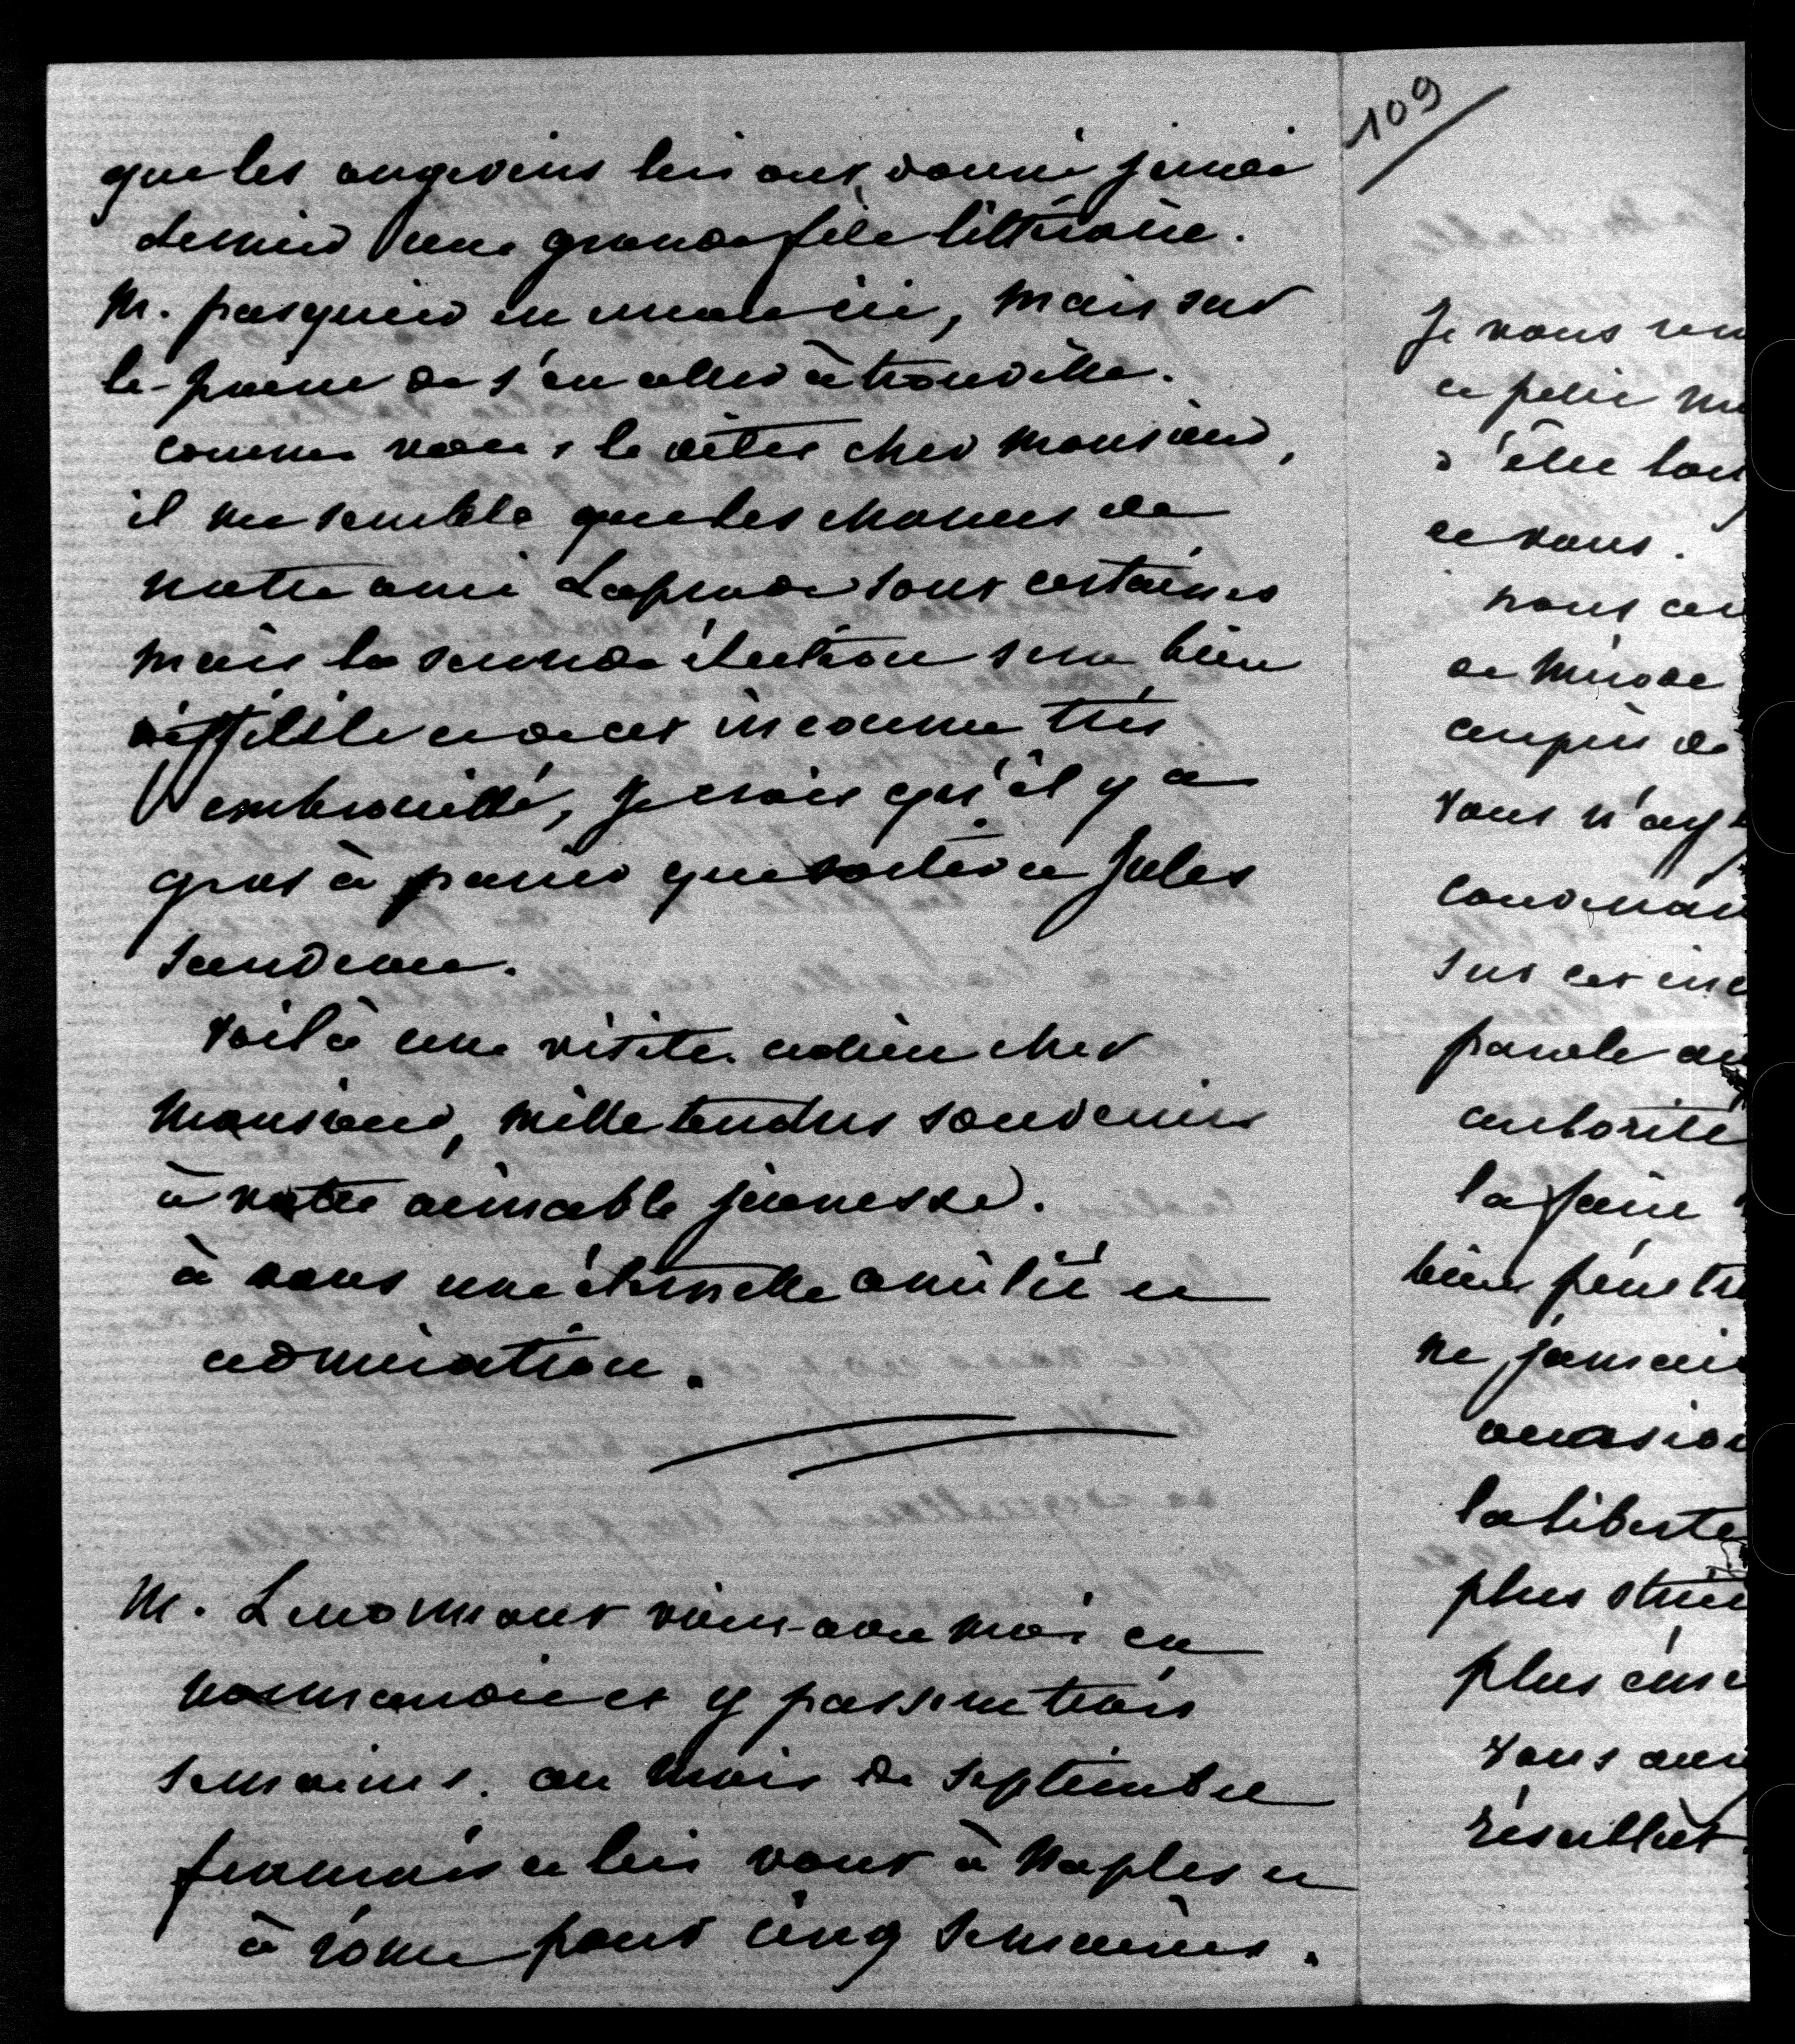 que les angevins lui ont donné jeudi
dernier une grande fête littéraire.
M. pasquier en ici, mais sur
le-point de s'en aller à trouville.
comme vous le dites cher monsieur,
il me semble que les chances de
notre ami Laprade sont certaines
mais la seconde élection sera bien
difficile et d'ici très
embrouillé, je crois qu'il y a
gros à parier que sortira Jules
Sandeau.
voilà une visite. adieu cher
Monsieur, mille tendres souvenirs
à votre aimable jeunesse.
à vous une éternelle amitié et
admiration.
M. Lenormant vient avec moi en
normandie et y passera trois
semaines. au mois de septembre
françois et lui vont à Naples et
à rome pour cinq semaines.
109
Je vous
ce petit
d'être
et vous.
nous
de Mérode
auprès de
vous n'ay
sur cet
parole
autorité
la faire
bien
ne jamais
occasion
la liberté
plus
plus
vous
résultat